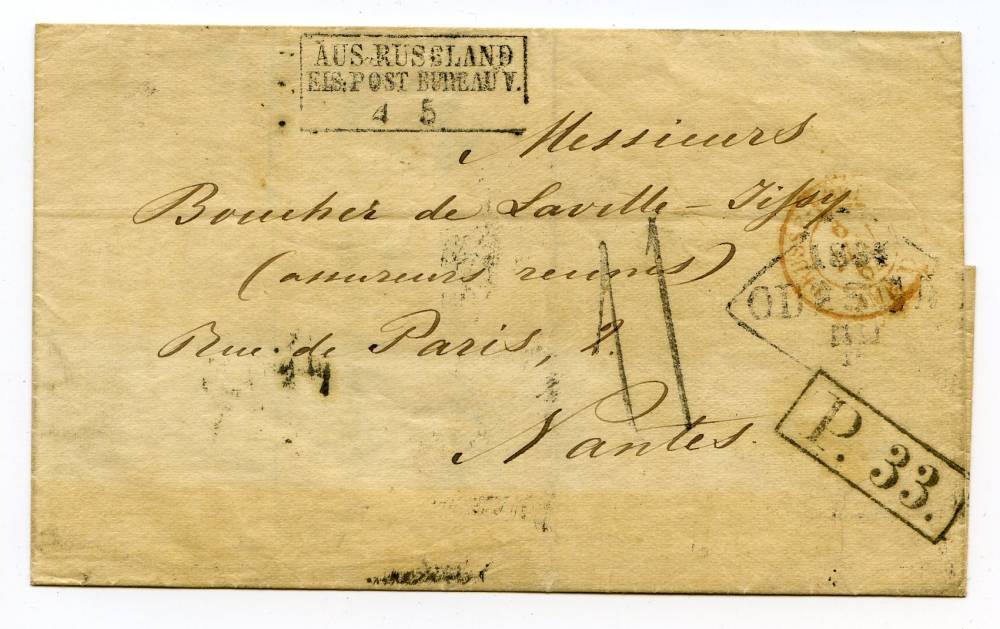 AUS RUSSLAND
EIS. POST BUREAU V.
4 5
Messieurs
Boucher de Laville-Tissy
(assureurs reunis)
Rue de Paris, 2.
Nantes.
11
ODESSA
P. 33.